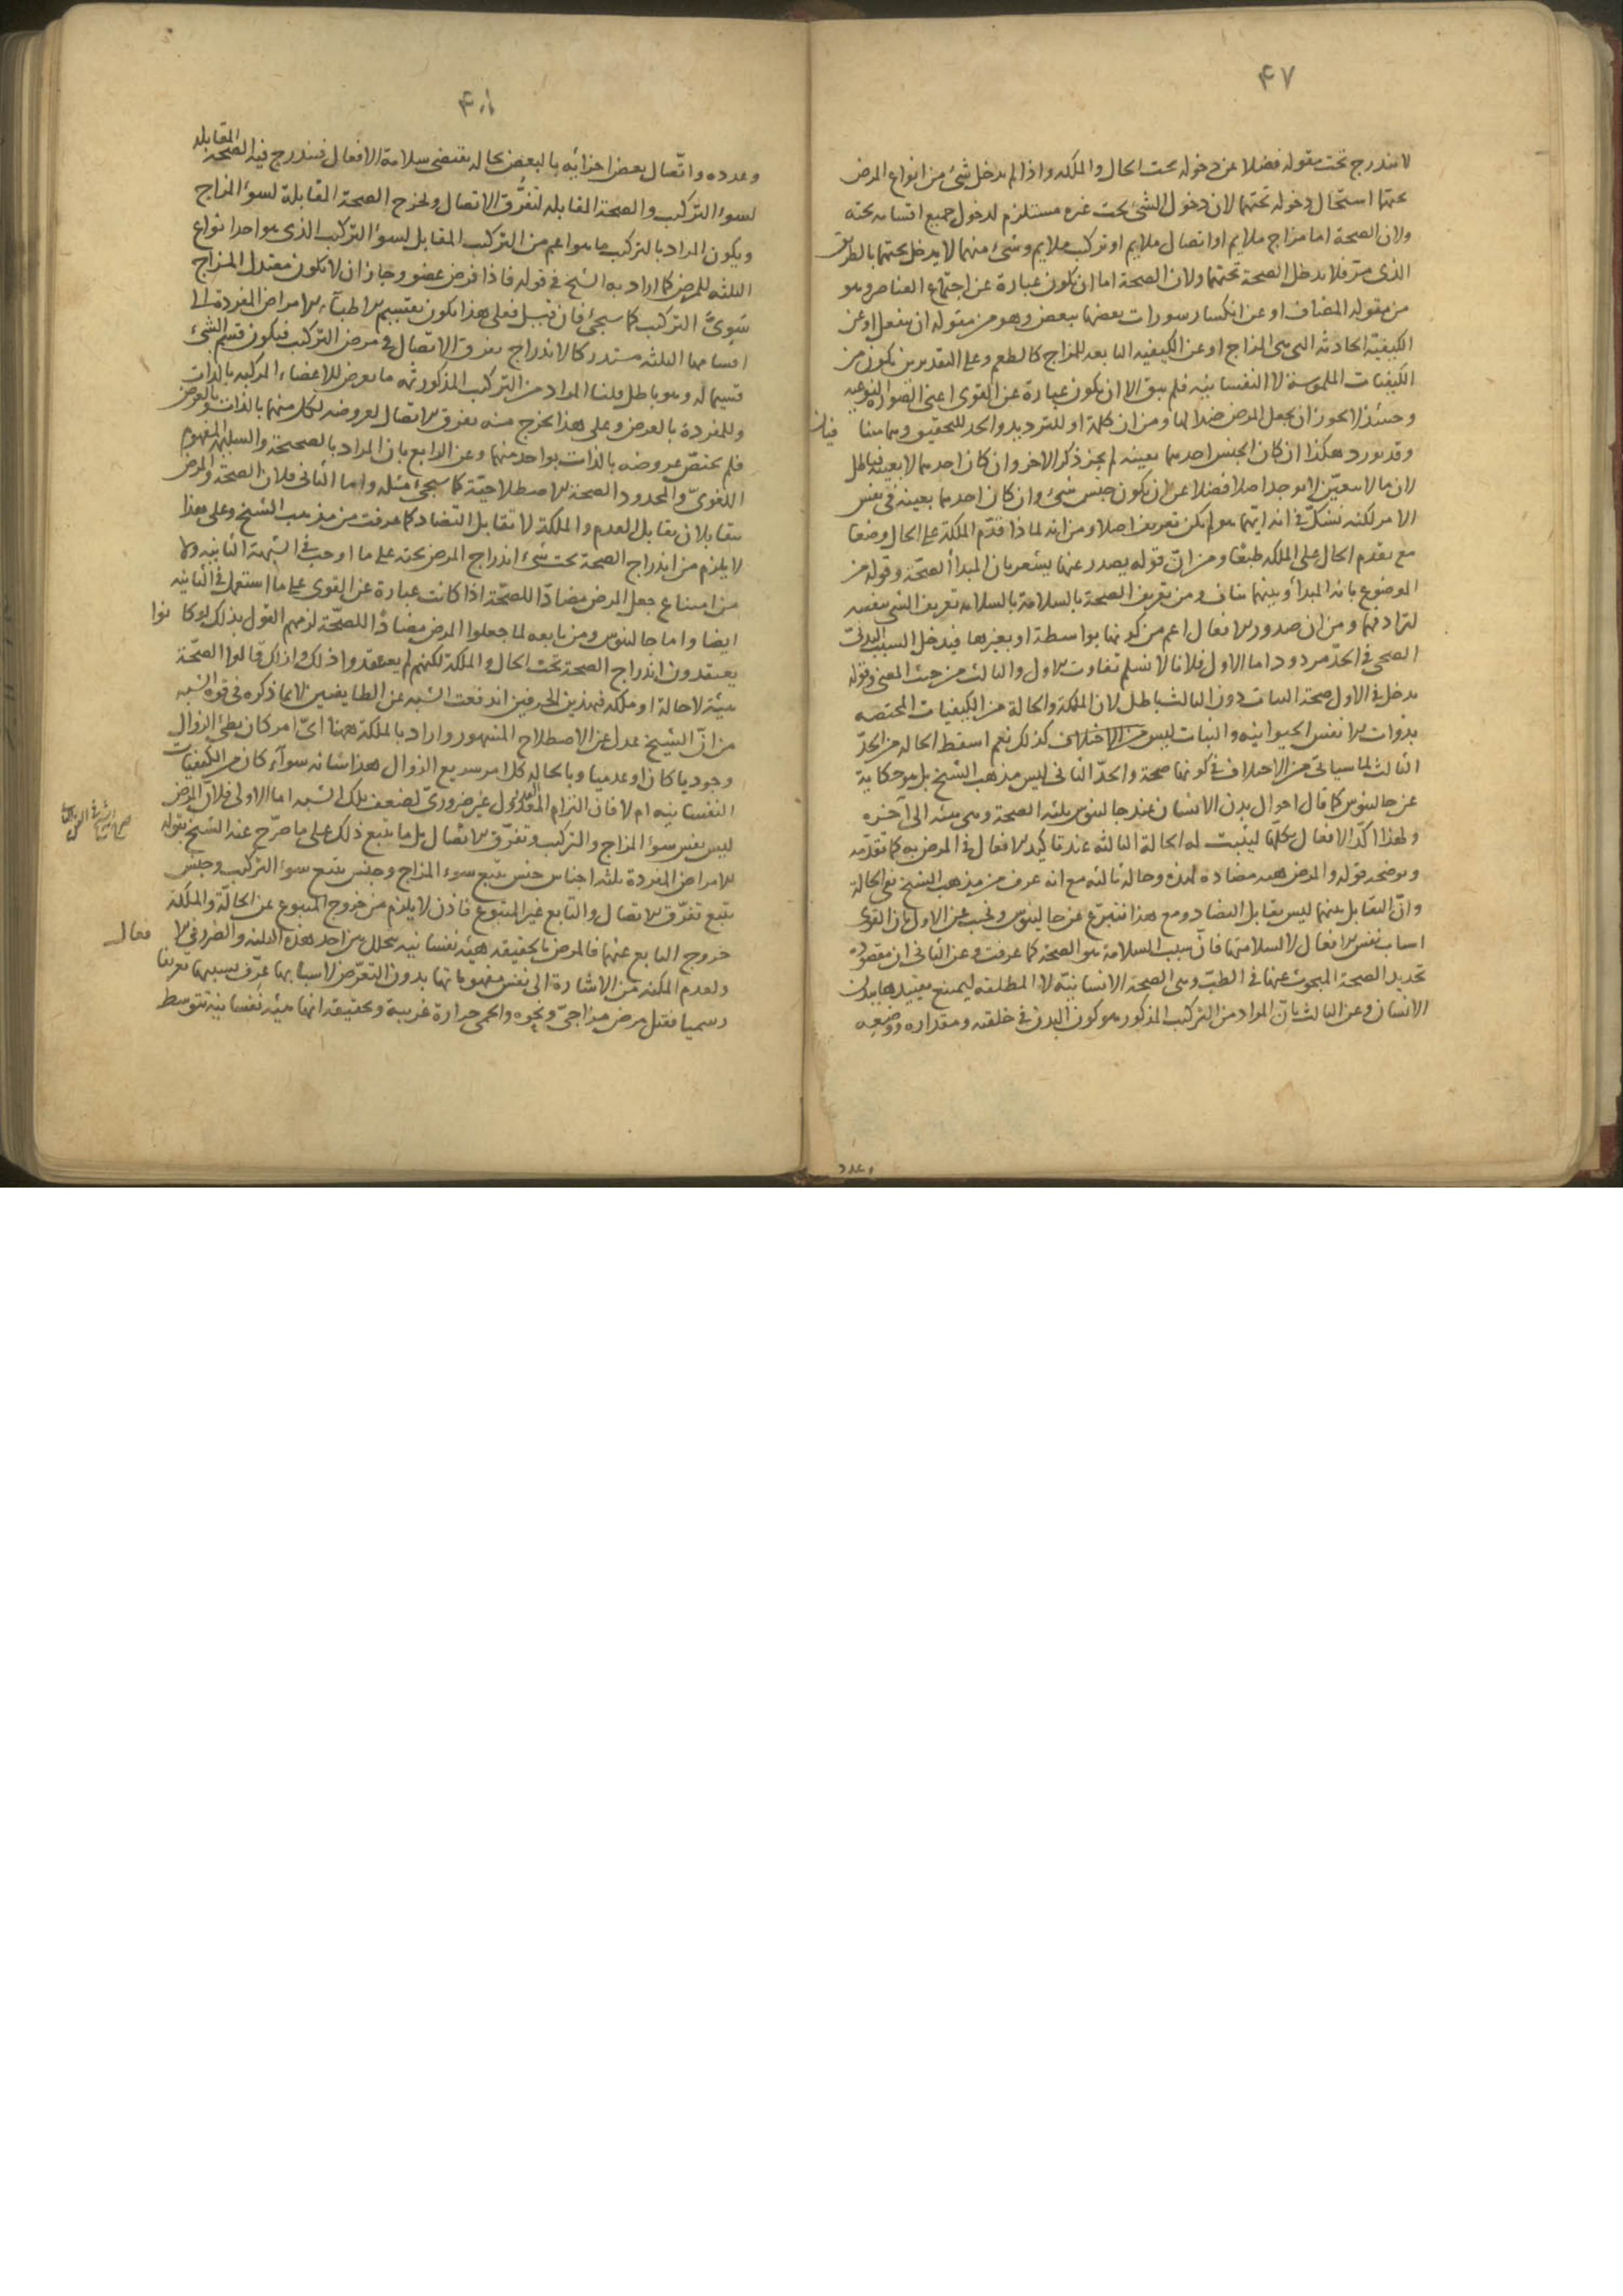 ٤٧
لا يندرج تحت مقولة فضلا عن دخوله تحت الحال والملكه واذا لم يدخل شئ من انواع المرض
تحتها استحال دخوله تحتهما لان دخول الشئ تحت غيره مستلزم لدخول جميع اقسامه تحته
ولان الصحة اما مزاج ملايم او اتصال ملايم او تركيب ملايم وشئ منهما لا يدخل تحتهما بالطريق
الذى مر فلا يدخل الصحة تحتهما ولان الصحة اما ان يكون عبارة عن اجتماع العناصر وهو
من مقوله المضاف او عن انكسار سورات بعضها ببعض وهو من مقوله ان ينفعل او عن
الكيفية الحادثه التى هى المزاج او عن الكيفيه التابعه للمزاج كالطعم وعلى التقديرين يكون من
الكيفيات الملموسة لا النفسانيه فلم يبق الا ان يكون عبارة عن القوى اعنى الصوره النوعيه
وحينئذ لا يجوز ان يجعل المرض ضدا لها ومن ان كلمة او للترديد والحد للتحقيق وهما متنا فيان
وقد يورد هكذا ان كان الجنس احدهما بعينه لم يجز ذكر الاخر وان كان احدهما لا بعينه فباطل
لان ما لا يتعين لا يوجد اصلا فضلا عن ان يكون جنس شئ وان كان احدهما بعينه فى نفس
الامر لكنه نشك فى انه ايهما هو لم يكن تعريفا اصلا ومن انه لماذا قدم الملكة على الحال وضعا
مع تقدم الحال على الملكه طبعا ومن ان قوله يصدر عنها يشعر بان المبدأ الصحة وقوله من
الموضوع بانه المبدأ وبينهما تناف ومن تعريف الصحة بالسلامة بالسلامه تعريف الشئ بنفسه
لترادفهما ومن ان صدور الافعال اعم من كونها بواسطة او بغيرها فيدخل السبب البدنى
الصحى فى الحد مردود اما الاول فلانا لا نسلم تفاوت الاول والثالث من حيث المعنى وقوله
يدخل فى الاول صحة النبات دون الثالث باطل لان الملكة والحالة من الكيفيات المختصه
بذوات الانفس الحيوانيه والنبات ليس من الاختلاف كذلك نعم اسقط الحاله من الحد
الثالث لما سياتى من الاختلاف فى كونها صحة والحد الثانى ليس مذهب الشيخ بل هو حكاية
عن جالينوس كما قال احوال بدن الانسان عند جالينوس ثلثه الصحة وهى هيئه الى آخره
ولهذا اكد الافعال بكلها ليثبت له الحالة الثالثه عند تاكيد الافعال فى المرض به كما تقدمه
ويوضحه قوله والمرض هيئه مضادة لهذه وحاله ثالثه مع انه عرف من مذهب الشيخ نفى الحالة
وان التقابل بينهما ليس تقابل التضاد ومع هذا نتبرع عن جالينوس ونجيب عن الاول بان القوى
اسباب نفس الافعال لا لسلامتها فان سبب السلامه هو الصحة كما عرفت وعن الثانى ان مقصوده
تحديد الصحة المبحوث عنها فى الطب وهى الصحة الانسانية لا المطلقه ليمتنع تقييدها ببدن
الانسان وعن الثالث بان المراد من التركيب المذكور هو كون البدن فى خلقته ومقداره ووضعه
وعدد
٤٨
وعدده واتصال بعض اجزائه بالبعض بحاله يقتضى سلامة الافعال فيندرج فيه الصحة المقابله
لسوء التركيب والصحة المقابله لتفرق الاتصال ويخرج الصحة المقابلة لسوء المزاج
ويكون المراد بالتركيب ما هو اعم من التركيب المقابل لسوء التركيب الذى هو احد انواع
الثلثه للمرض كما اراد به الشيخ فى قوله فاذا فرض عضو وجاز ان لا يكون معتدل المزاج
سوى التركيب كما سيجئ فان قيل فعلى هذا يكون تقسيم الاطباء الامراض المفردة الى
اقسامها الثلثه مستدركا لاندراج تفرق الاتصال فى مرض التركيب فيكون قسم الشئ
قسيما له وهو باطل قلنا المراد من التركيب المذكور ثمه ما يعرض للاعضاء المركبه بالذات
وللمفردة بالعرض وعلى هذا يخرج منه تفرق الاتصال لعروضه لكل منهما بالذات وبالعرض
فلم يختص عروضه بالذات بواحد منهما وعن الرابع بان المراد بالصحيحة والسليمة المفهوم
اللغوى والمحدود الصحة الاصطلاحية كما سيجئ مثله واما الثانى فلان الصحة والمرض
متقابلان تقابل العدم والملكة لا تقابل التضاد كما عرفت من مذهب الشيخ وعلى هذا
لا يلزم من اندراج الصحة تحت شئ اندراج المرض تحته على ما اوجب فى الشبهة الثانيه ولا
من امتناع جعل المرض مضادا للصحة اذا كانت عبارة عن القوى على ما استعمل فى الثانيه
ايضا واما جالينوس ومن تابعه لما جعلوا المرض مضادا للصحة لزمهم القول بذلك لو كانوا
يعتقدون اندراج الصحة تحت الحال والملكة لكنهم لم يعتقدوا ذلك ولذلك قالوا الصحة
هيئة لا حالة او ملكه فبهذين الحرفين اندفعت الشبه عن الطائفتين لا بما ذكره فى قوة الشبه
من ان الشيخ عدل عن الاصطلاح المشهور واراد بالملكة ههنا اى امر كان بطئ الزوال
وجوديا كان او عدميا وبالحاله كل امر سريع الزوال هذا شانه سواء كان من الكيفيات
النفسانيه ام لا فان التزام العدول غير ضرورى لضعف تلك الشبه اما الاولى فلان المرض
ليس نفس سوء المزاج والتركيب وتفرق الاتصال بل ما يتبع ذلك على ما صرح عنه الشيخ بقوله
الامراض المفردة ثلثه اجناس جنس يتبع سوء المزاج وجنس يتبع سوء التركيب وجنس
يتبع تفرق الاتصال والتابع غير المتبوع فاذن لا يلزم من خروج المتبوع عن الحالة والملكة
خروج التابع عنهما فالمرض بالحقيقه هيئه نفسانيه تحصل من احد هذه الثلثه والضرر فى الافعال
ولعدم المكنه من الاشارة الى نفس مفهوماتها بدون التعرض لاسبابها عرف بسببها تعريفا
رسميا فقيل مرض مزاجى ونحوه والحمى حرارة غريبة وحقيقه انها هيئه نفسانيه بتوسط